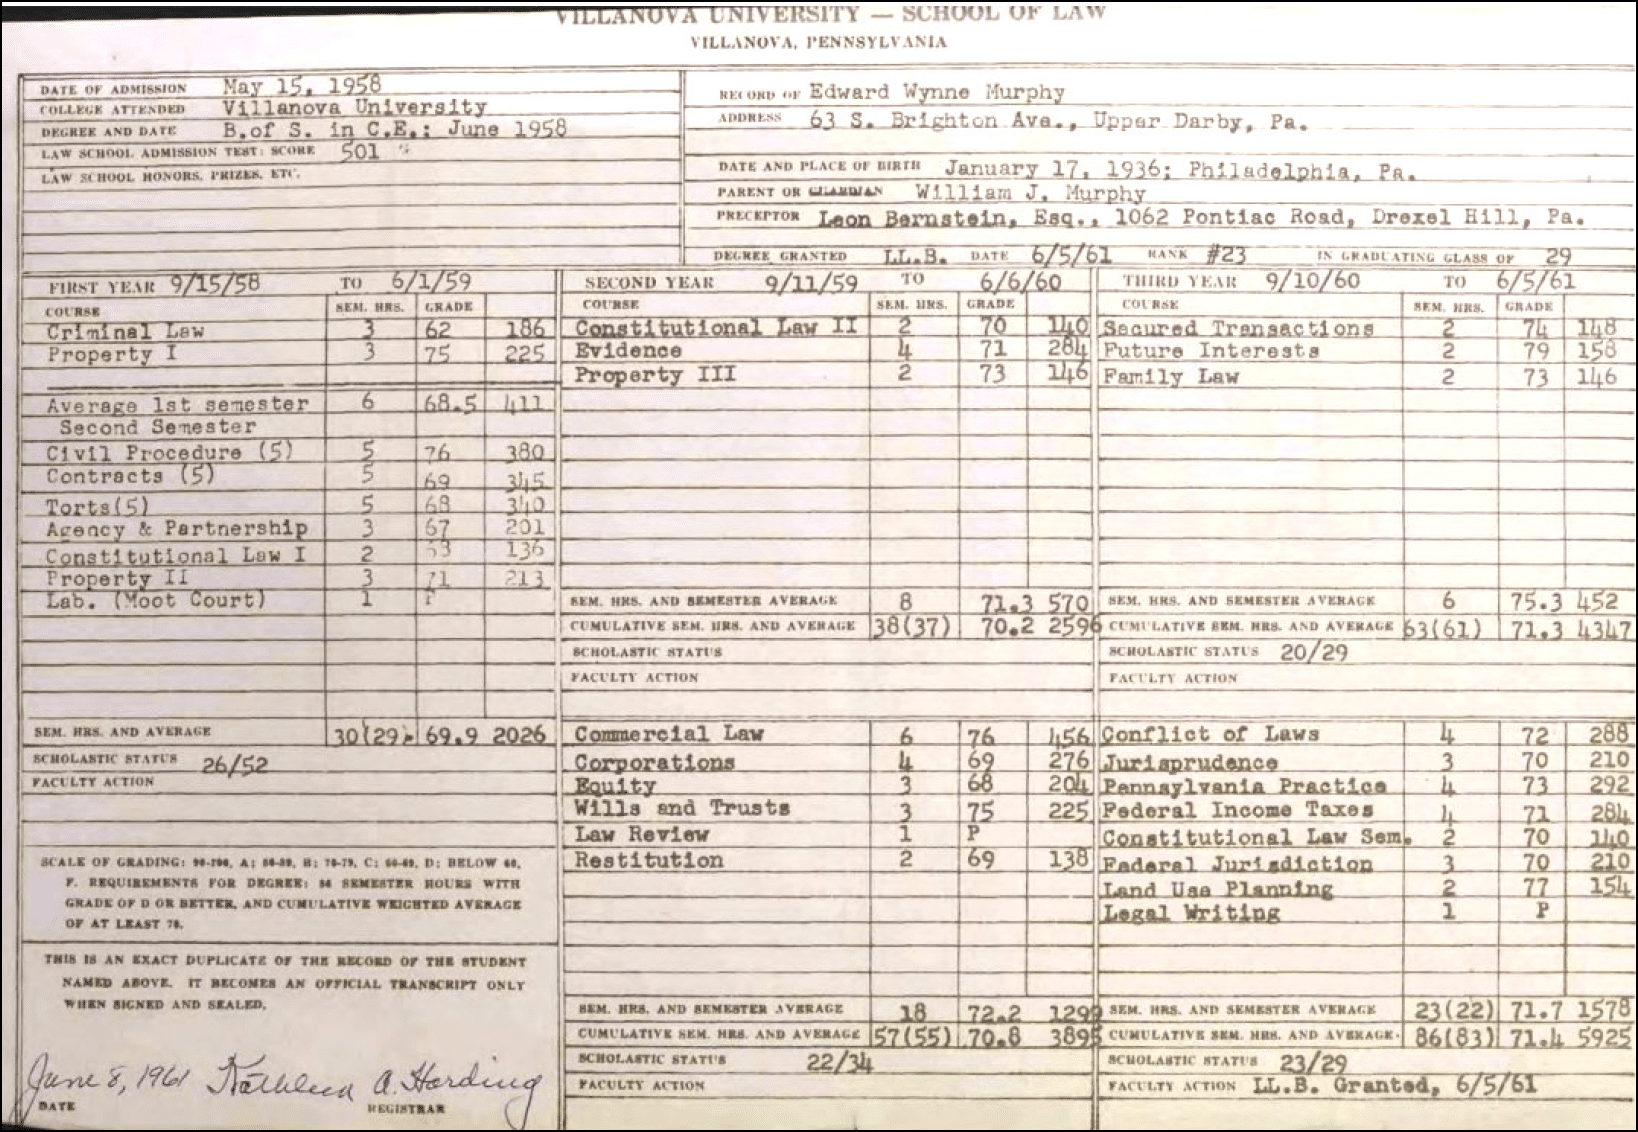 VILLANOVA UNIVERSITY — SCHOOL OF LAW
VILLANOVA, PENNSYLVANIA
DATE OF ADMISSION May 15, 1958
COLLEGE ATTENDED Villanova University
DEGREE AND DATE B.of S. in C.E.; June 1958
LAW SCHOOL ADMISSION TEST: SCORE 501
LAW SCHOOL HONORS, PRIZES, ETC.
RECORD OF Edward Wynne Murphy
ADDRESS 63 S. Brighton Ave., Upper Darby, Pa.
DATE AND PLACE OF BIRTH January 17, 1936; Philadelphia, Pa.
PARENT OR GUARDIAN William J. Murphy
PRECEPTOR Leon Bernstein, Esq., 1062 Pontiac Road, Drexel Hill, Pa.
DEGREE GRANTED LL.B. DATE 6/5/61 RANK #23 IN GRADUATING CLASS OF 29
FIRST YEAR 9/15/58 TO 6/1/59
COURSE SEM. HRS. GRADE
Criminal Law 3 62 186
Property I 3 75 225
Average 1st semester 6 68.5 411
Second Semester
Civil Procedure (5) 5 76 380
Contracts (5) 5 69 345
Torts(5) 5 68 340
Agency & Partnership 3 67 201
Constitutional Law I 2 136
Property II 3 71 213
Lab. (Moot Court) 1 P
SEM. HRS. AND AVERAGE 30(29) 69.9 2026
SCHOLASTIC STATUS 26/52
FACULTY ACTION
SCALE OF GRADING: 90-100, A; 80-89, B; 70-79, C; 60-69, D; BELOW 60,
F. REQUIREMENTS FOR DEGREE: 84 SEMESTER HOURS WITH
GRADE OF D OR BETTER, AND CUMULATIVE WEIGHTED AVERAGE
OF AT LEAST 70.
THIS IS AN EXACT DUPLICATE OF THE RECORD OF THE STUDENT
NAMED ABOVE. IT BECOMES AN OFFICIAL TRANSCRIPT ONLY
WHEN SIGNED AND SEALED.
June 8, 1961 Kathleen A. Harding
DATE REGISTRAR
SECOND YEAR 9/11/59 TO 6/6/60
COURSE SEM. HRS. GRADE
Constitutional Law II 2 70 140
Evidence 4 71 284
Property III 2 73 146
SEM. HRS. AND SEMESTER AVERAGE 8 71.3 570
CUMULATIVE SEM. HRS. AND AVERAGE 38(37) 70.2 2596
SCHOLASTIC STATUS
FACULTY ACTION
Commercial Law 6 76 456
Corporations 4 69 276
Equity 3 68 204
Wills and Trusts 3 75 225
Law Review 1 P
Restitution 2 69 138
SEM. HRS. AND SEMESTER AVERAGE 18 72.2 1299
CUMULATIVE SEM. HRS. AND AVERAGE 57(55) 70.8 3895
SCHOLASTIC STATUS 22/34
FACULTY ACTION
THIRD YEAR 9/10/60 TO 6/5/61
COURSE SEM. HRS. GRADE
Secured Transactions 2 74 148
Future Interests 2 79 158
Family Law 2 73 146
SEM. HRS. AND SEMESTER AVERAGE 6 75.3 452
CUMULATIVE SEM. HRS. AND AVERAGE 63(61) 71.3 4347
SCHOLASTIC STATUS 20/29
FACULTY ACTION
Conflict of Laws 4 72 288
Jurisprudence 3 70 210
Pennsylvania Practice 4 73 292
Federal Income Taxes 4 71 284
Constitutional Law Sem. 2 70 140
Federal Jurisdiction 3 70 210
Land Use Planning 2 77 154
Legal Writing 1 P
SEM. HRS. AND SEMESTER AVERAGE 23(22) 71.7 1578
CUMULATIVE SEM. HRS. AND AVERAGE 86(83) 71.4 5925
SCHOLASTIC STATUS 23/29
FACULTY ACTION LL.B. Granted, 6/5/61